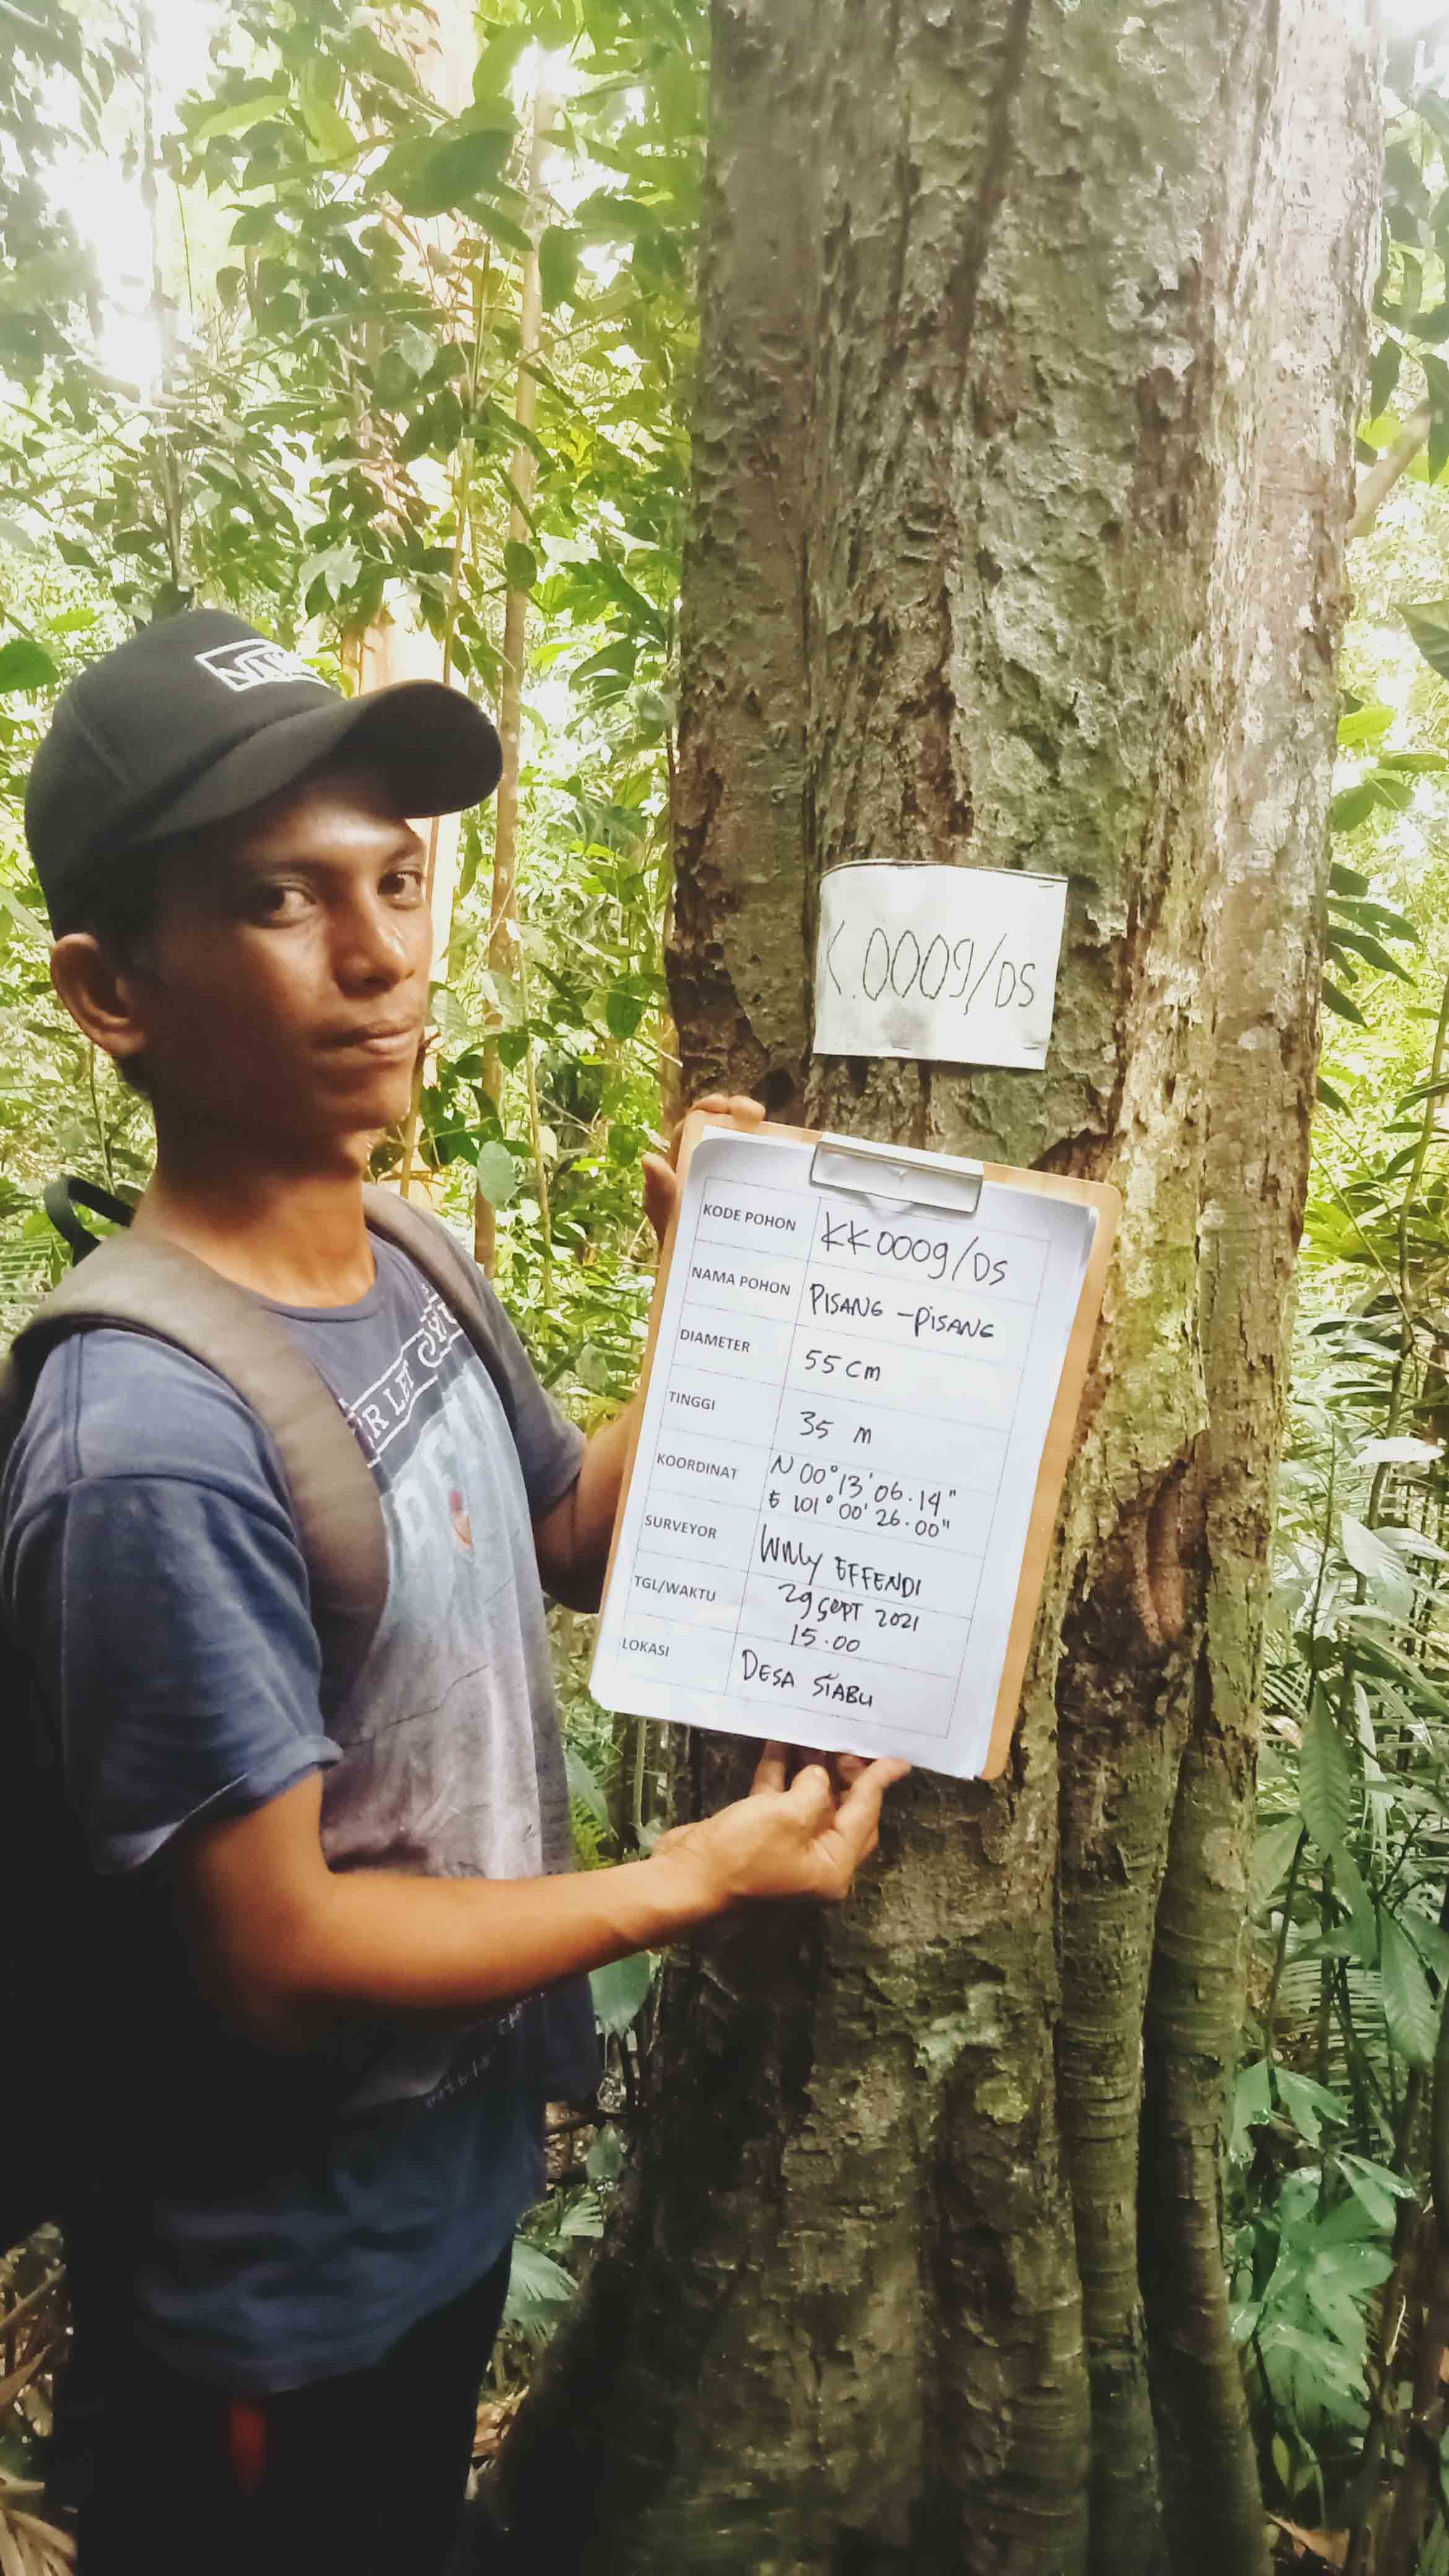 K.0009/DS
KODE POHON KK0009/DS
NAMA POHON PISANG - PISANG
DIAMETER 55 cm
TINGGI 35 m
KOORDINAT N 00° 13' 06.14"
E 101° 00' 26.00"
SURVEYOR Willy EFFENDI
TGL/WAKTU 29 SEPT 2021
15.00
LOKASI DESA SIABU